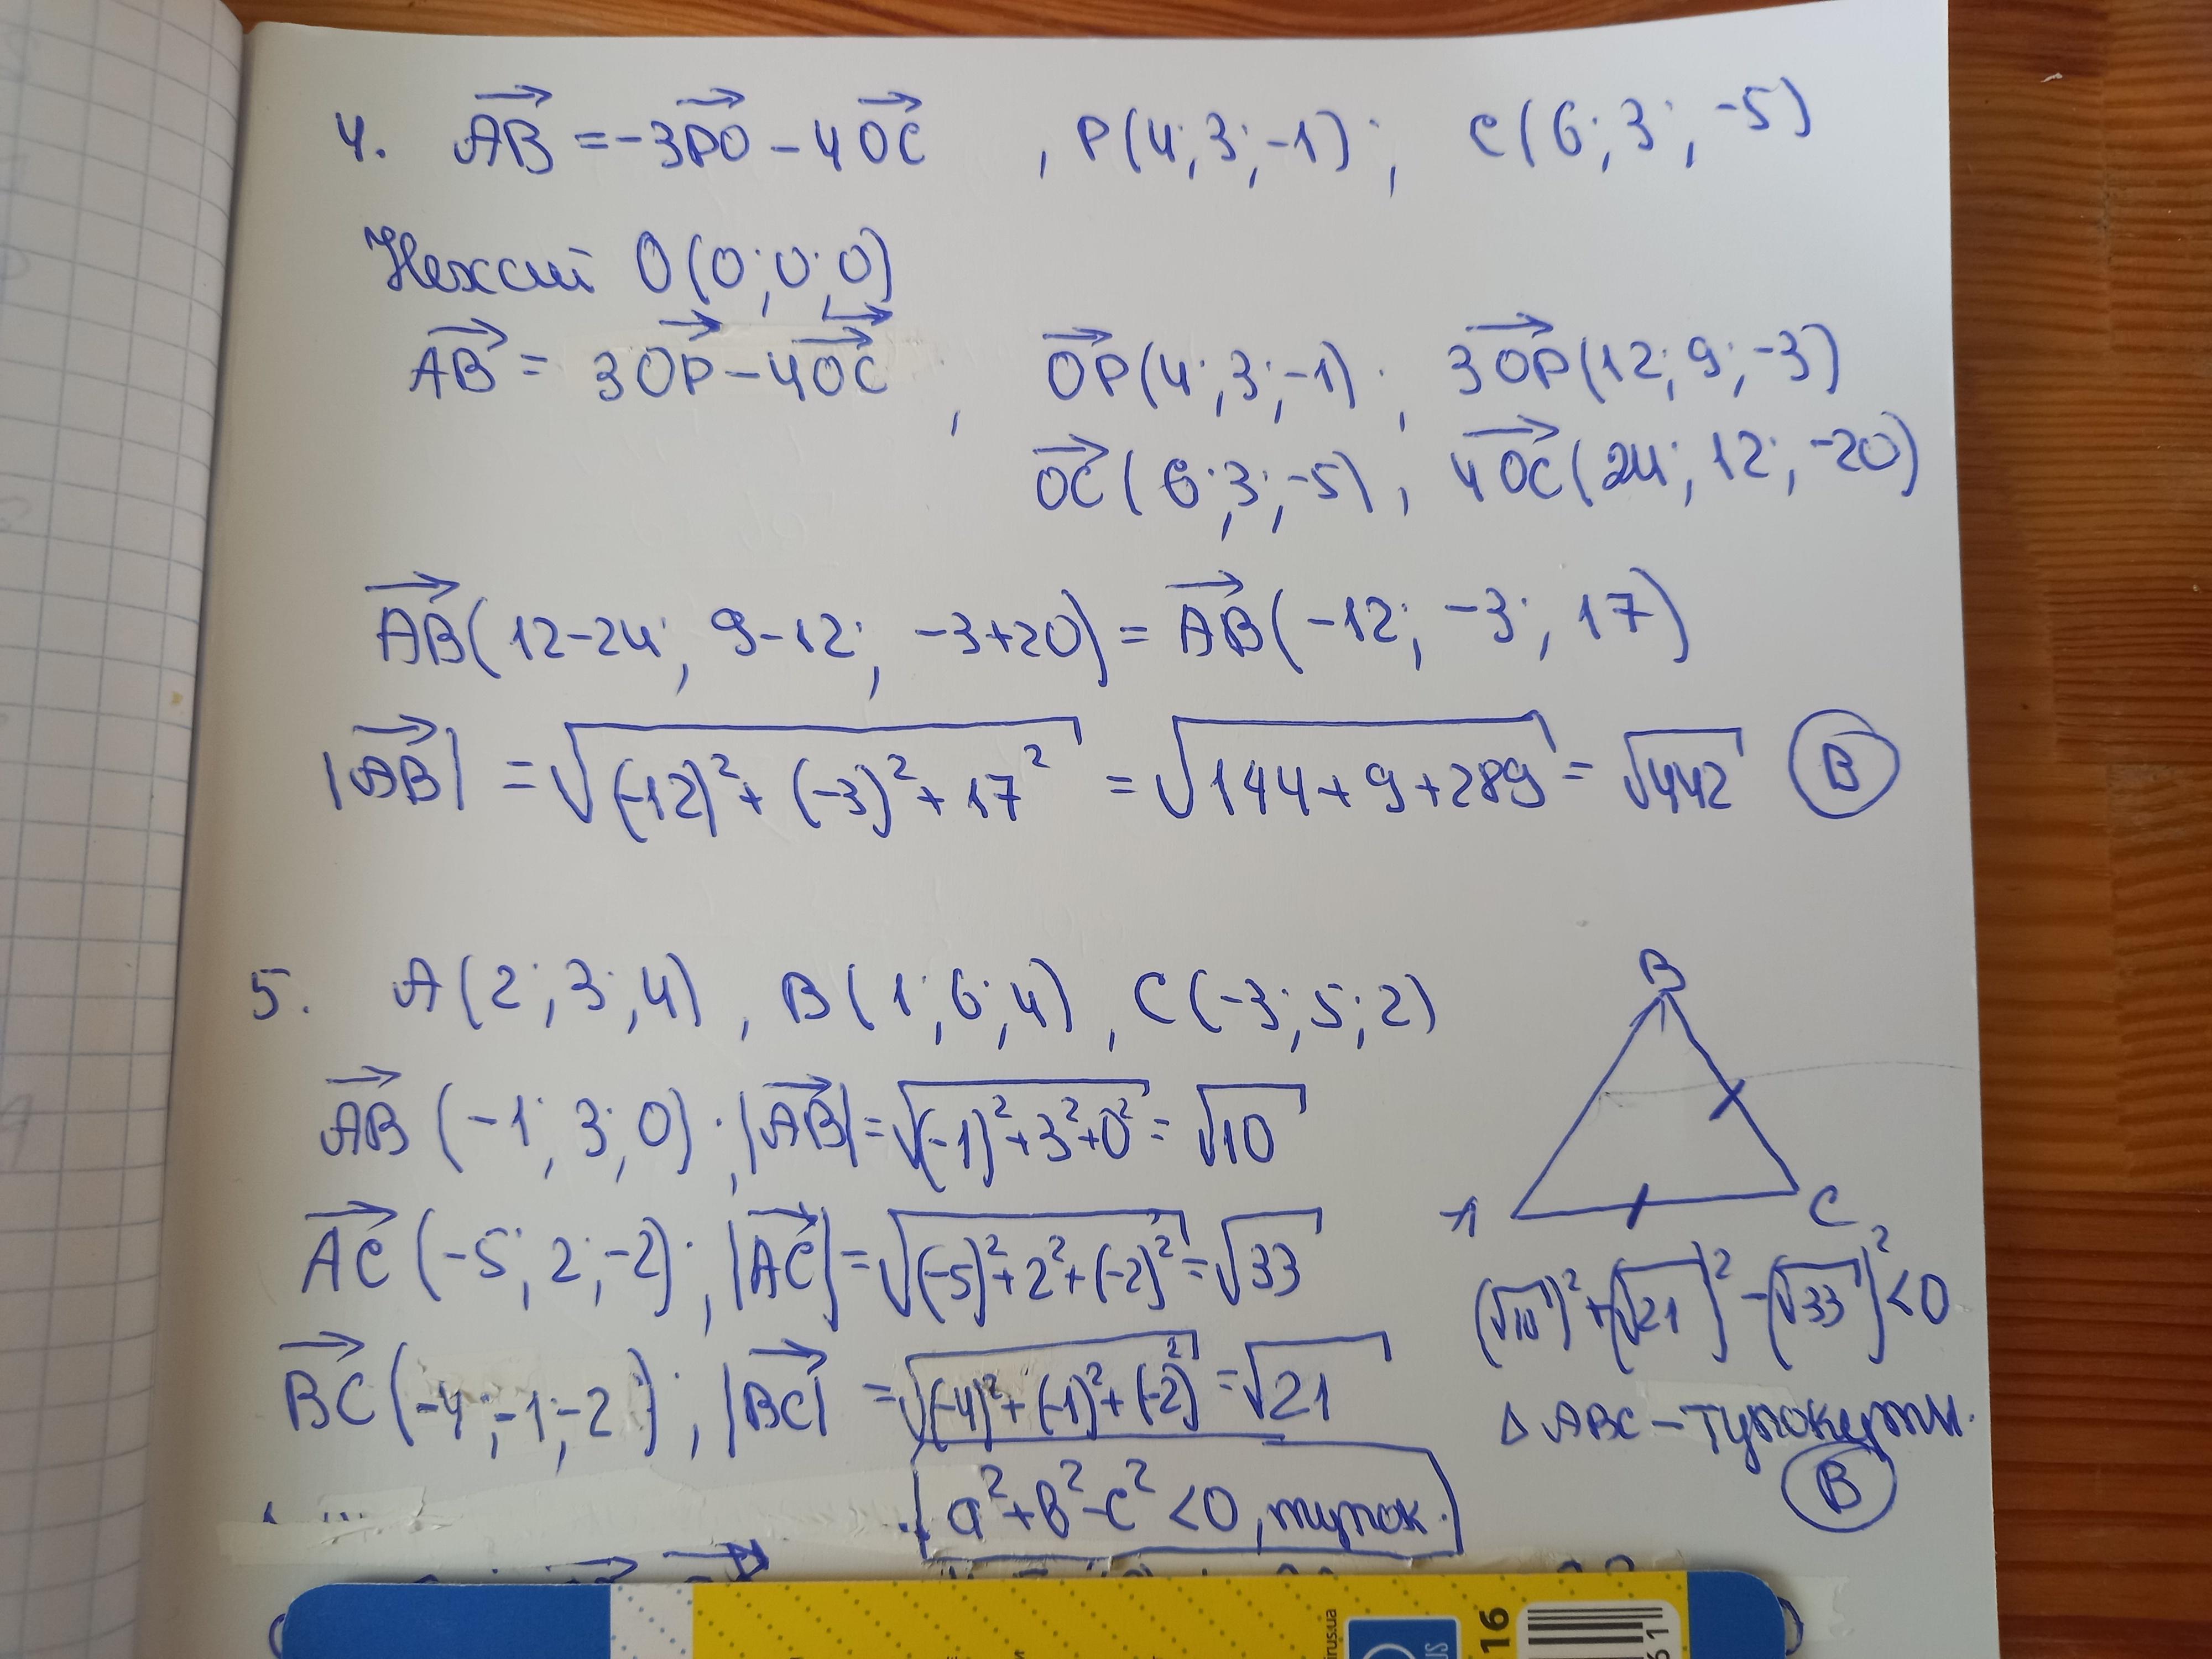 4. AB = -3PO - 4OC , P(4; 3; -1); C(6; 3; -5)
Нехай O(0; 0; 0)
AB = 3OP - 4OC ; OP(4; 3; -1); 3OP(12; 9; -3)
OC(6; 3; -5), 4OC(24; 12; -20)
AB(12-24; 9-12; -3+20) = AB(-12; -3; 17)
|AB| = √((-12)²+(-3)²+17²) = √(144+9+289) = √442 В
5. A(2; 3; 4), B(1; 6; 4), C(-3; 5; 2)
AB(-1; 3; 0); |AB| = √((-1)²+3²+0²) = √10
AC(-5; 2; -2); |AC| = √((-5)²+2²+(-2)²) = √33
BC(-4; -1; -2); |BC| = √((-4)²+(-1)²+(-2)²) = √21
a²+b²-c²<0, тупок.
B
A C
(√10)²+(√21)²-(√33)²<0
△ABC - тупокутн.
В
irus.ua
16
61